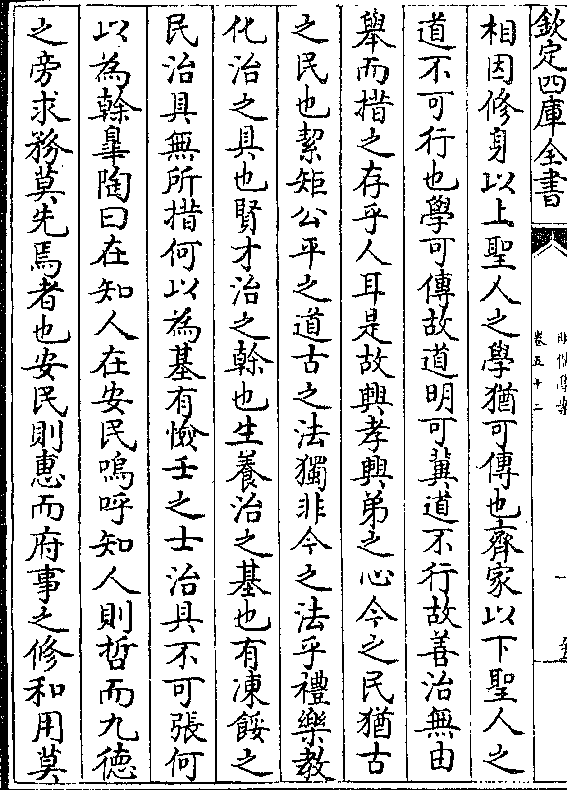 欽定四庫全書
明儒學案
卷五十二
相因修身以上聖人之學猶可傳也齊家以下聖人之
道不可行也學可傳故道明可冀道不行故善治無由
舉而措之存乎人耳是故興孝興弟之心今之民猶古
之民也絜矩公平之道古之法獨非今之法乎禮樂教
化治之具也賢才治之幹也生養治之基也有凍餒之
民治具無所措何以為基有憸壬之士治具不可張何
以為幹臯陶曰在知人在安民嗚呼知人則哲而九德
之旁求務莫先焉者也安民則惠而府事之修和用莫